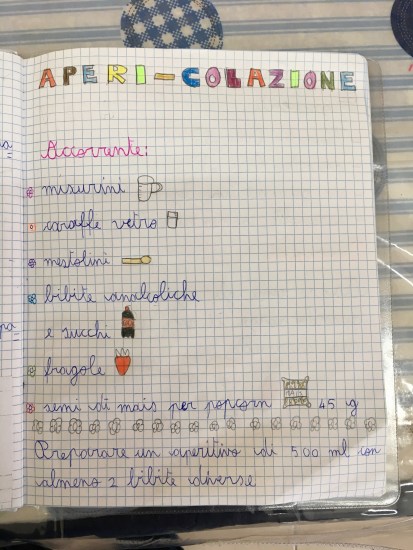 APERI-COLAZIONE
Accorrente:
misurini
caraffe vetro
mestolini
bibite analcoliche
e succhi
fragole
semi di mais per popcorn 45 g
Preparare un aperitivo di 500 ml con
almeno 2 bibite diverse